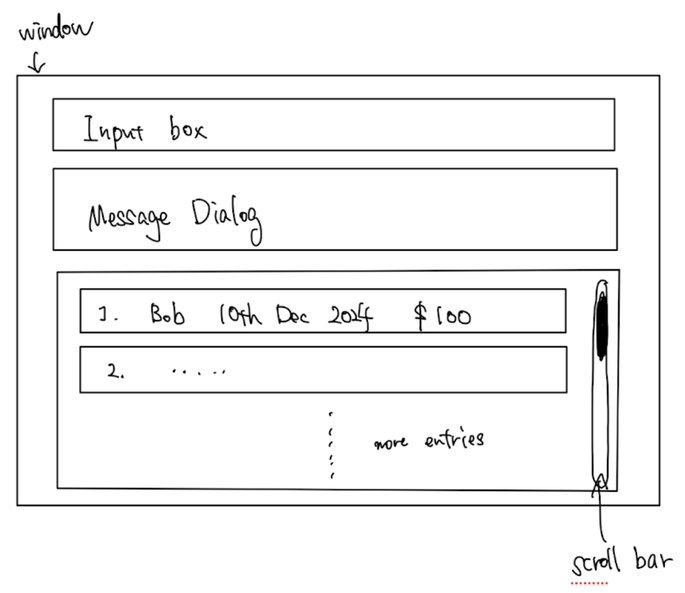 window
Input box
Message Dialog
1. Bob 10th Dec 2024 $100
2. .....
more entries
scroll bar